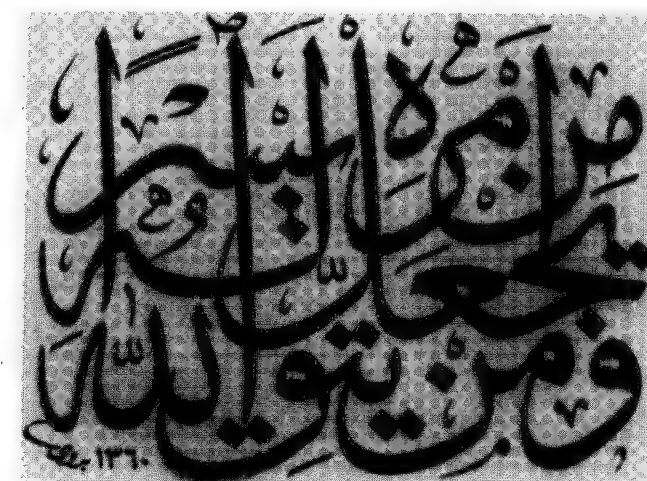 وَمَنْ يَتَّقِ اللّٰهَ
يَجْعَلْ لَهُ
مِنْ أَمْرِهِ يُسْرًا
١٣٦٠